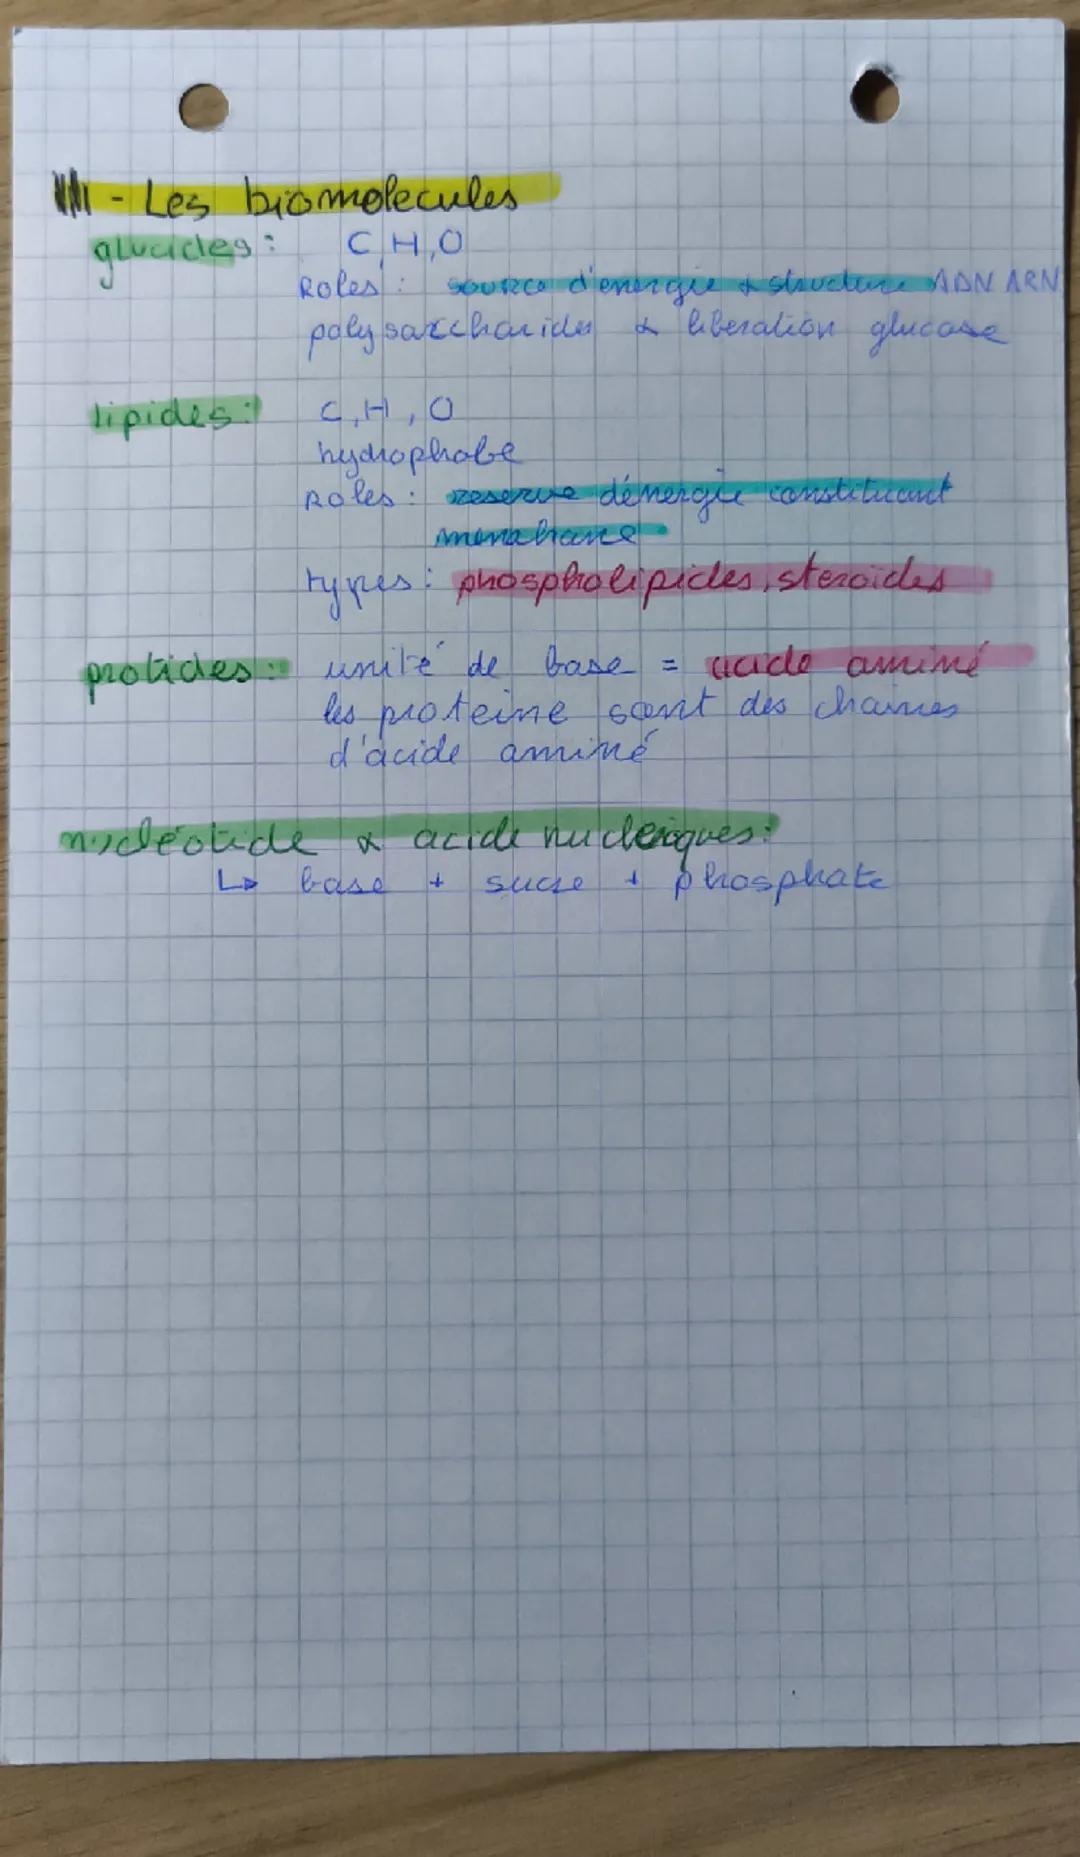 III - Les biomolecules
glucides : C, H, O
Roles : source d'energie & structure ADN ARN
polysaccharides & liberation glucose
lipides : C, H, O
hydrophobe
Roles : reserve d'énergie constituant
membrane
types : phospholipides, steroïdes
protides : unité de base = acide aminé
les proteine sont des chaines
d'acide aminé
nucléotide & acide nucleiques :
↳ base + sucre + phosphate